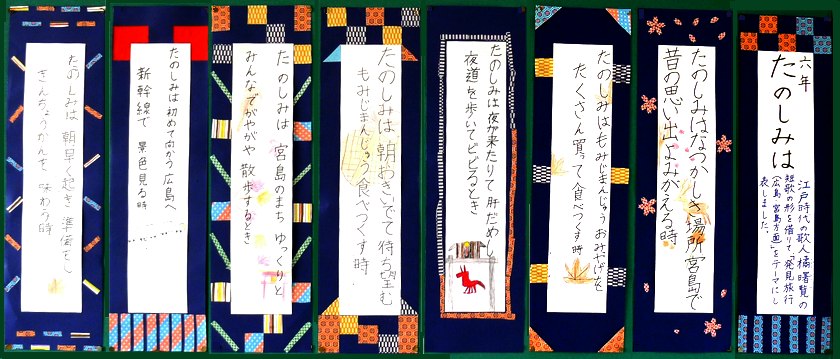 六年
たのしみは
江戸時代の歌人橘曙覧の
短歌の形を借りて、「発見旅行
(広島 宮島方面)」をテーマにし
表しました。
たのしみはなつかしき場所宮島で
昔の思い出よみがえる時
たのしみはもみじまんじゅうおみやげに
たくさん買って食べつくす時
たのしみは夜が来たりて肝だめし
夜道を歩いてビビるとき
たのしみは、朝おきいでて待ち望む
もみじまんじゅう食べつくす時
たのしみは 宮島のまち ゆっくりと
みんなでがやがや 散歩するとき
たのしみは初めて向かう広島へ
新幹線で 景色見る時
たのしみは 朝早く起き 準備をし
きんちょうかんを 味わう時